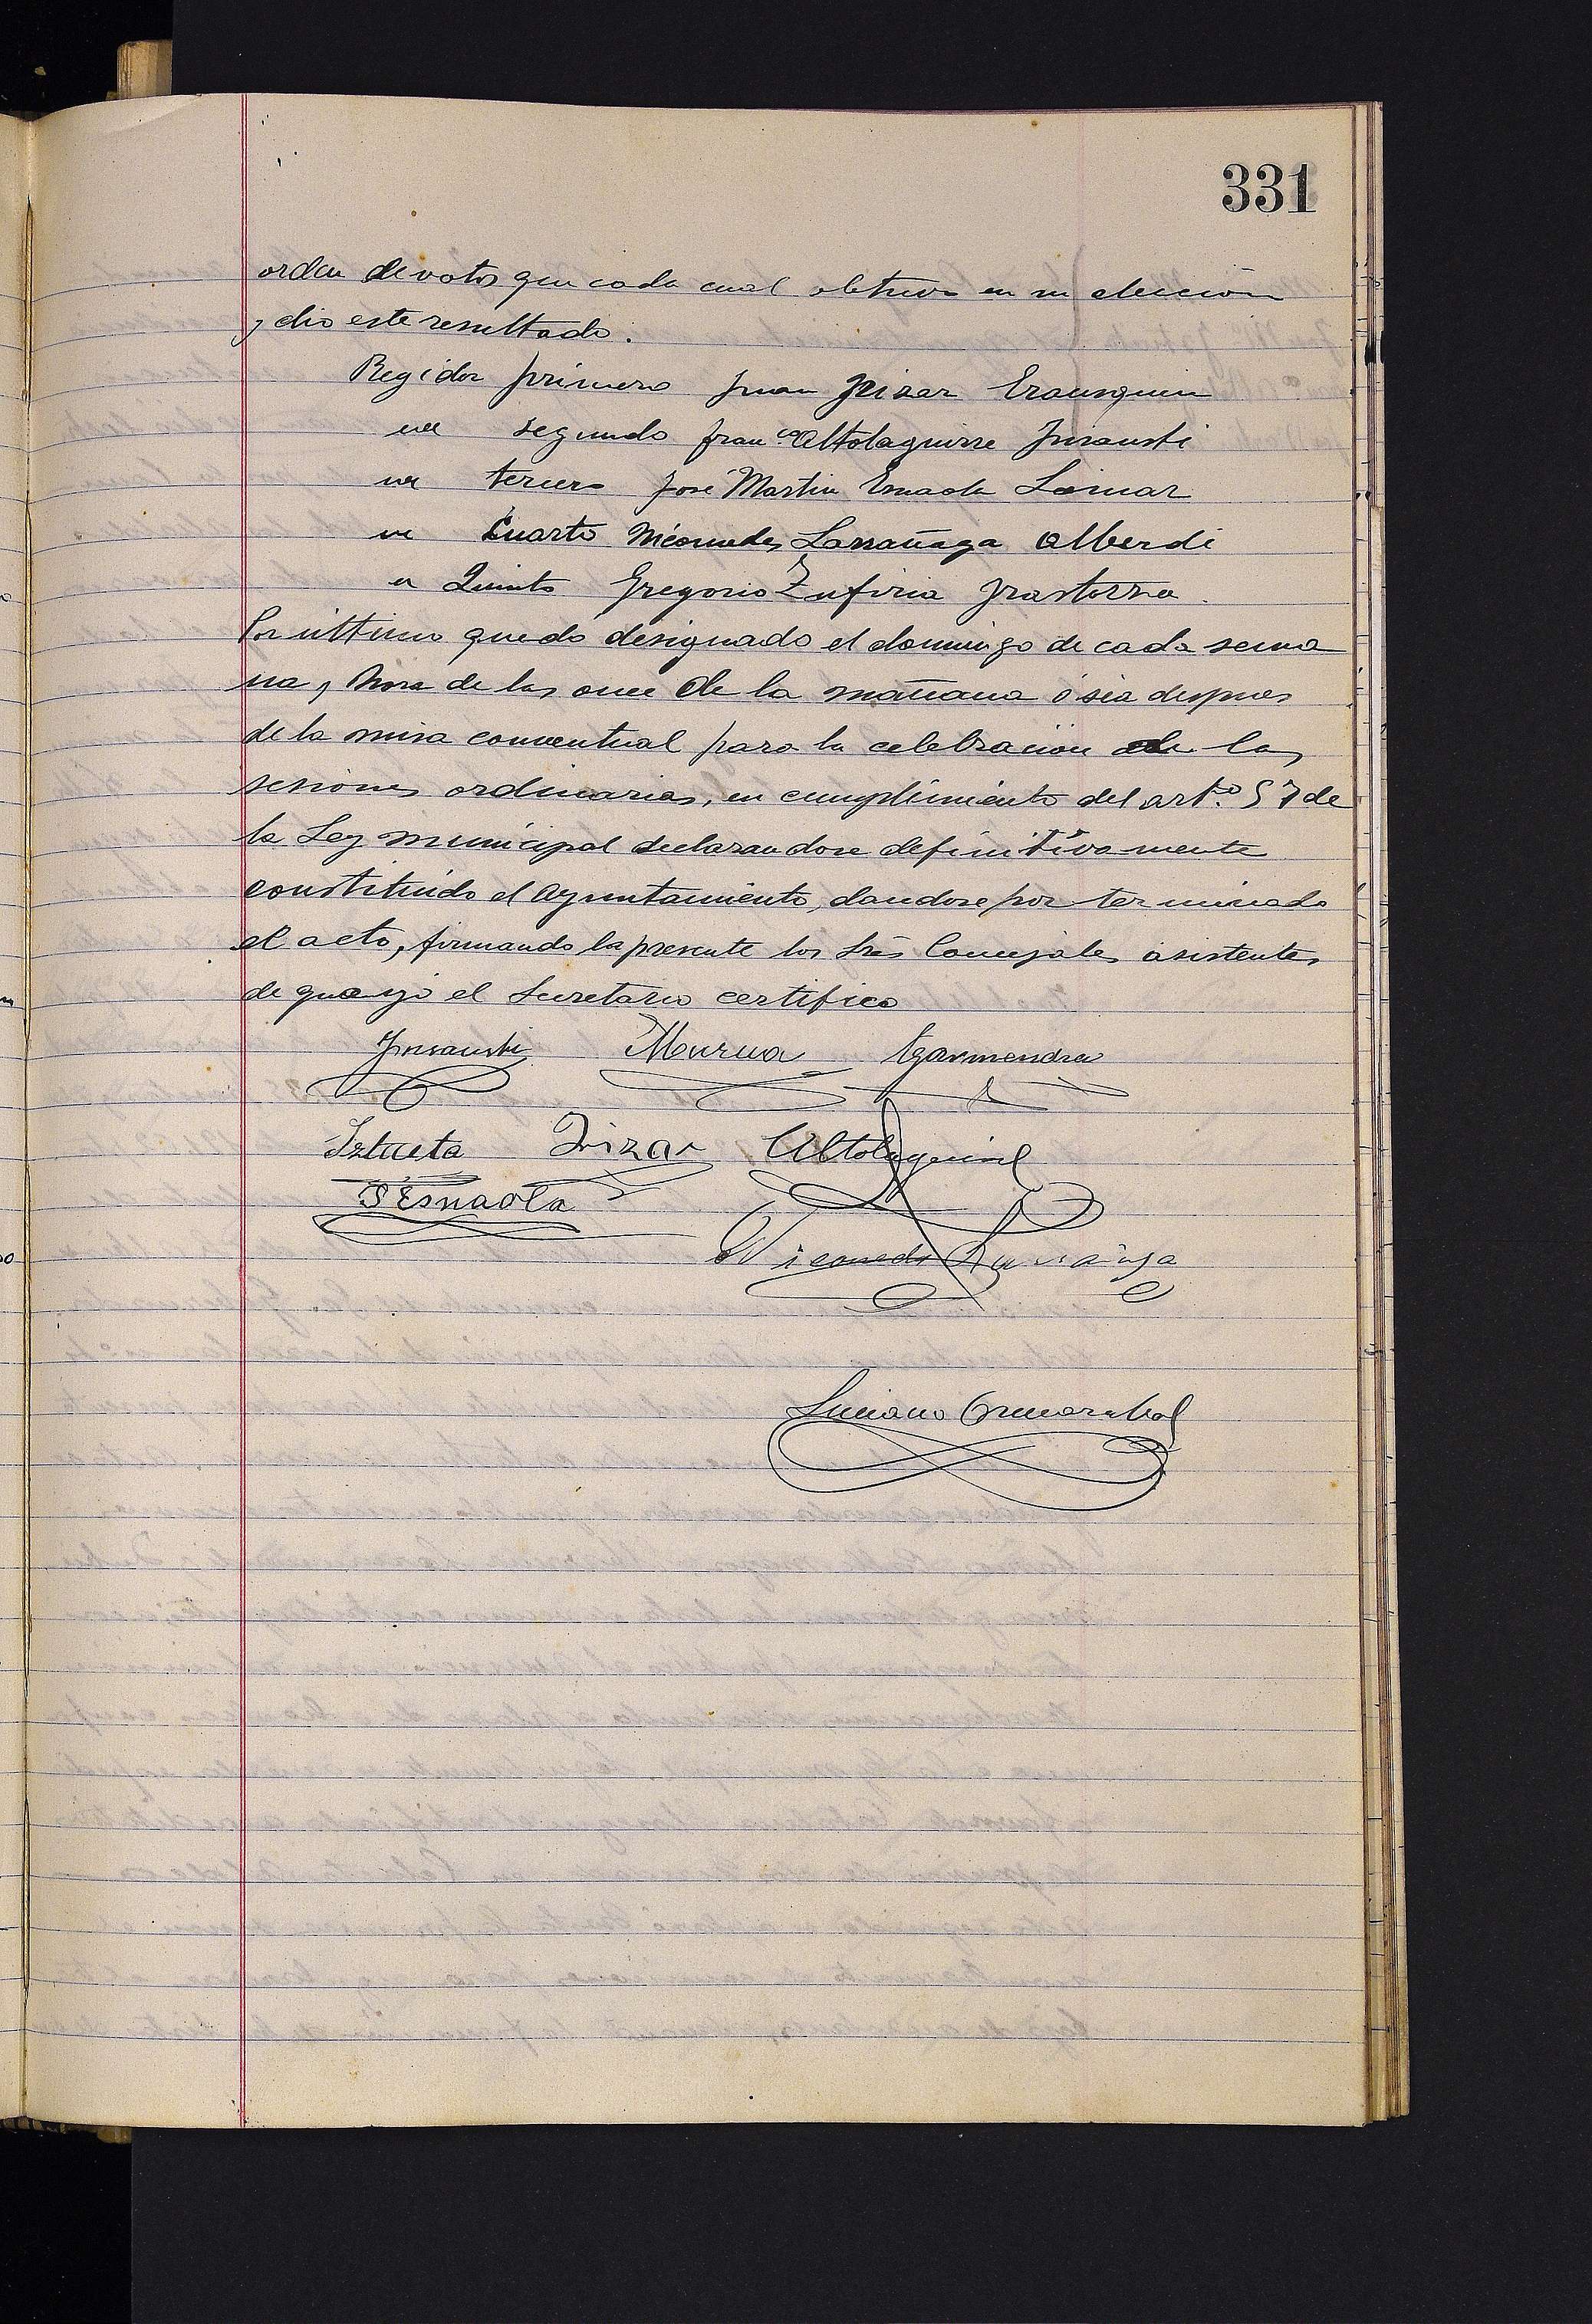 331
orden de votos que cada cual obtuvo en su elección
y dio este resultado.
Regidor primero Juan Irizar Erausquin
id segundo Franco Altolaguirre Insausti
id tercero José Martin Esnaola Lasnar
id Cuarto Nicomedes Larrañaga Alberdi
id Quinto Gregorio Zufiria Irastorza.
Por ultimo quedo designado el domingo de cada sema
na y hora de las once de la mañana ó sea despues
de la misa conventual para la celebracion de las
sesiones ordinarias, en cumplimiento del arto. 57 de
la Ley municipal declarandose definitivamente
constituido el Ayuntamiento, dandose por terminado
el acto, firmando la presente los Sres Concejales asistentes
de que yo el Secretario certifico
Insausti Murua Garmendia
Iztueta Irizar Altolaguirre
Esnaola
Nicomedes Larrañaga
Luciano Ormazabal